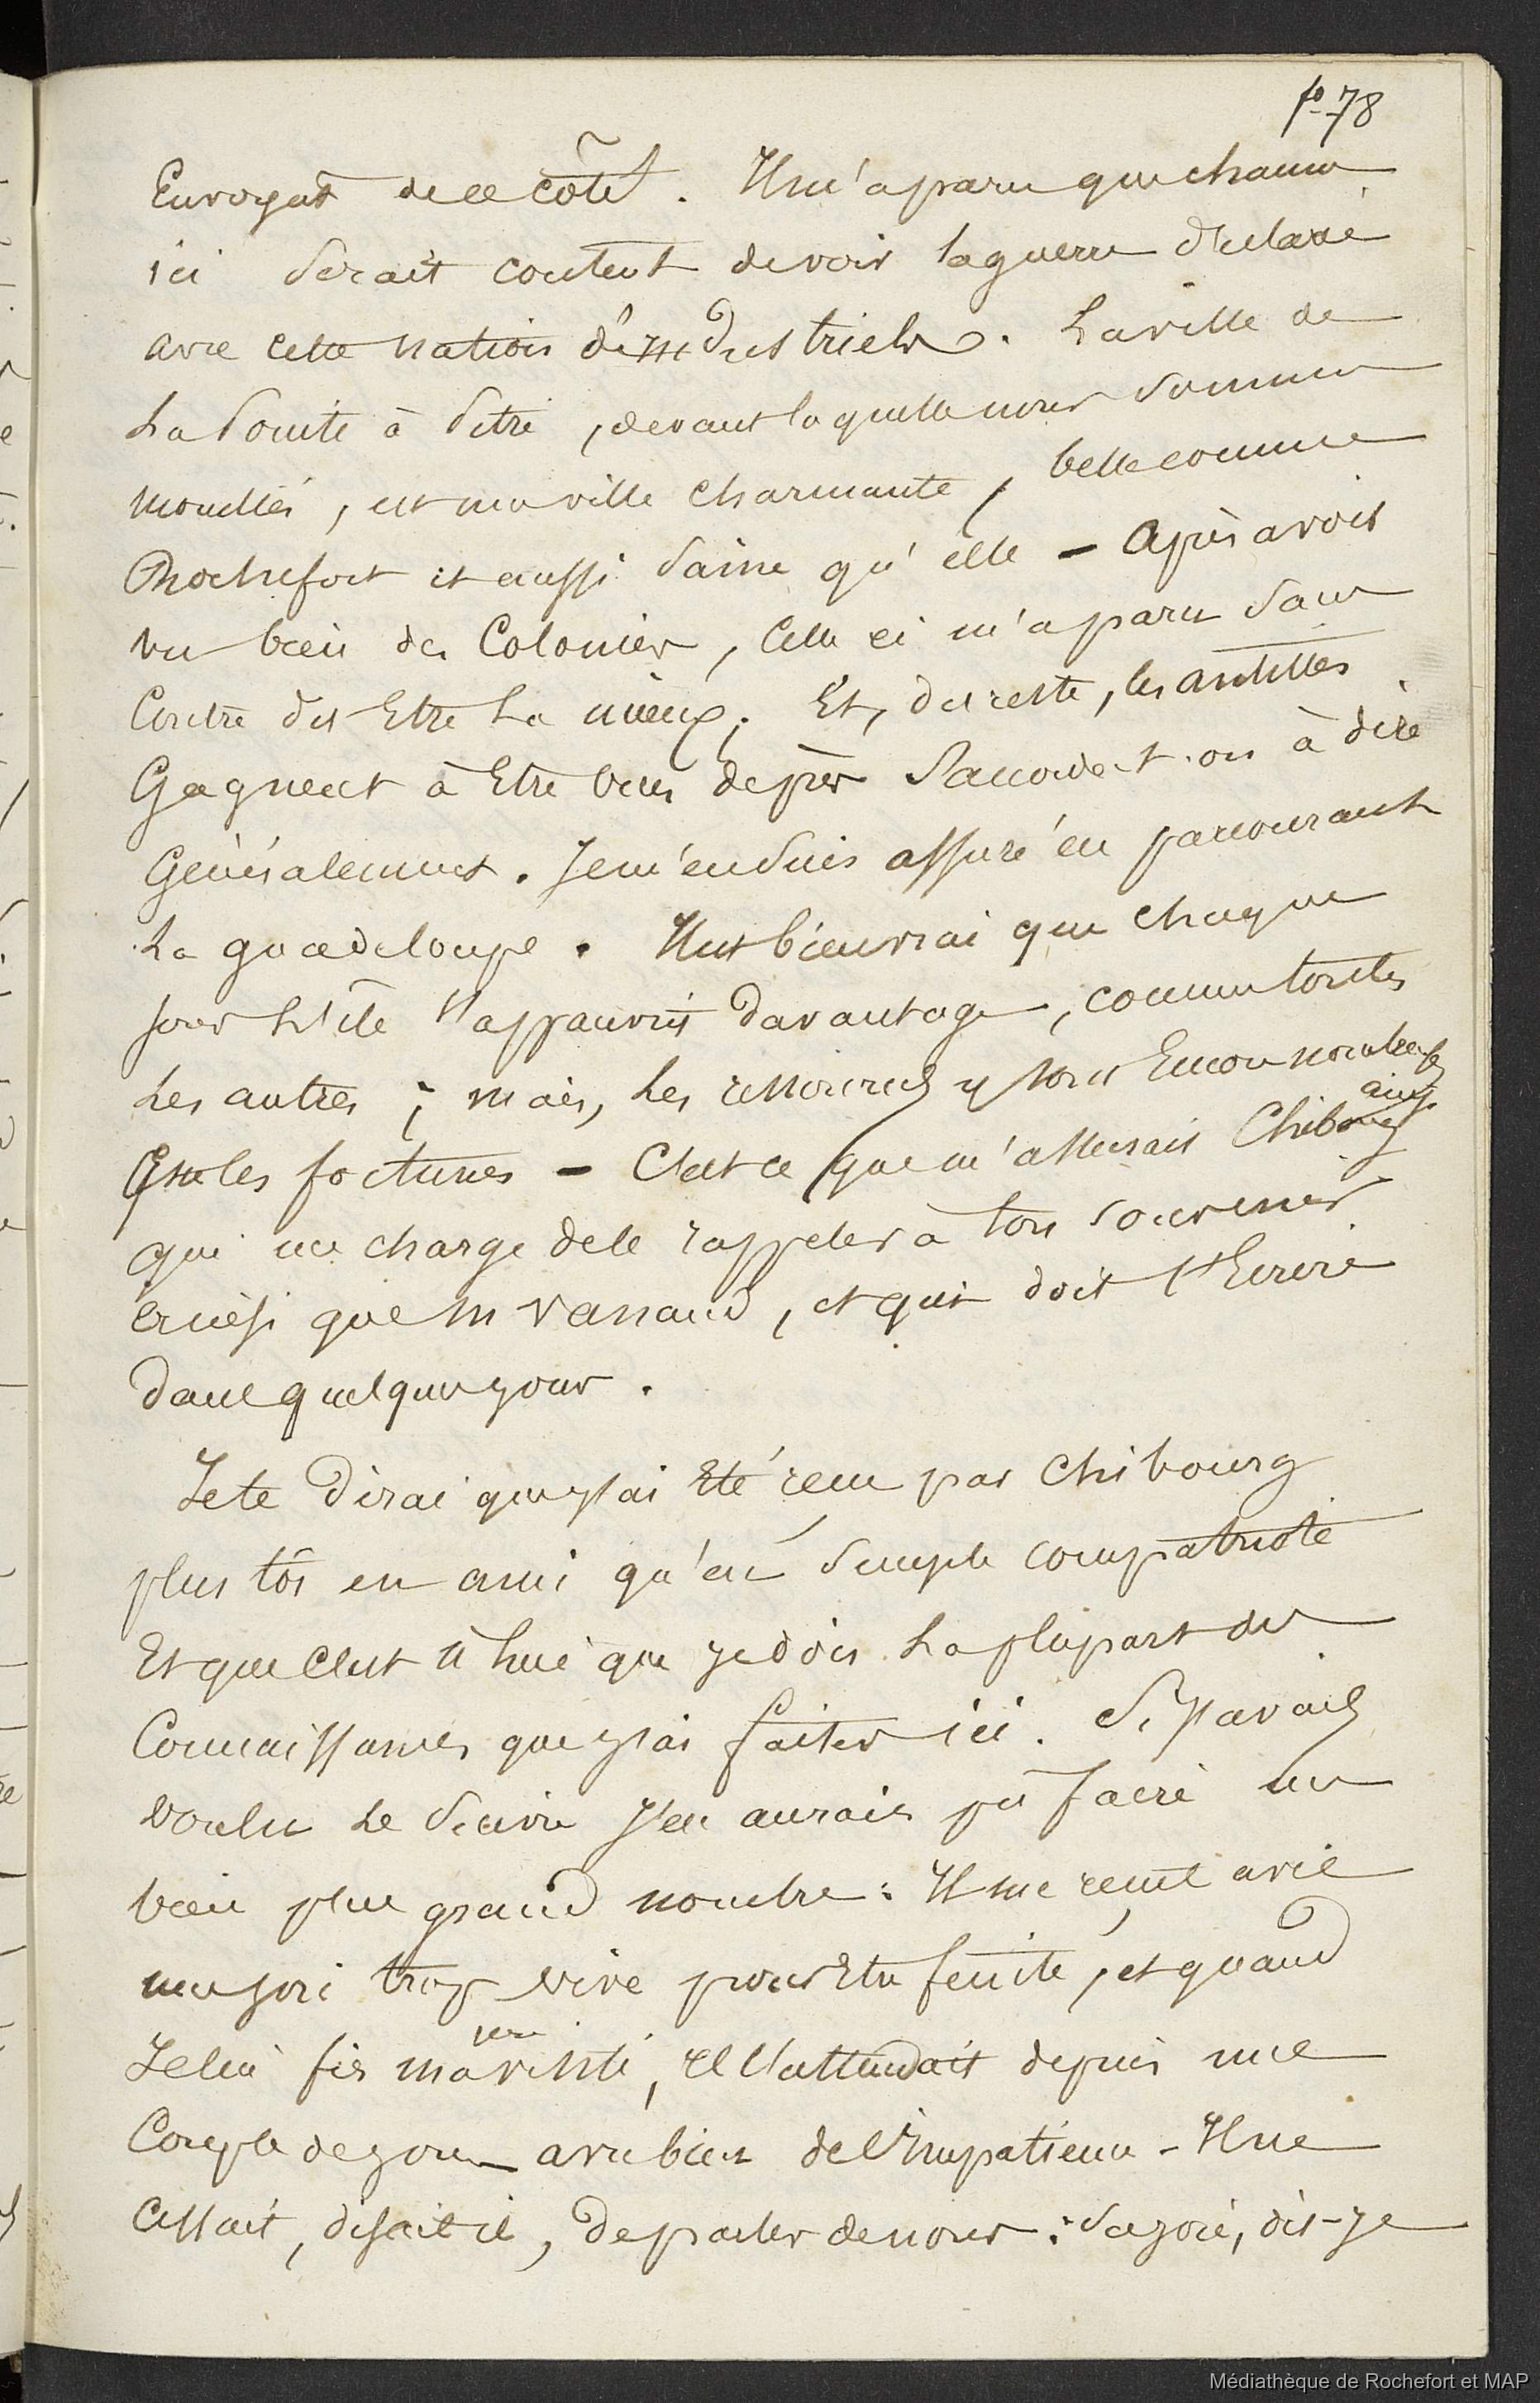 fo 78
Envoyat de ce côté. Il m'a paru que chacun
ici serait content de voir la guerre déclaré
avec cette nation d'industriels. La ville de
La Pointe à Pitre, devant laquelle nous sommes
mouillés, est une ville charmante, belle comme
Rochefort et aussi saine qu'elle - Après avoir
vu bien des Colonies, Celle ci m'a paru sans
Contre dit Etre La mieux. Et, du reste, les antilles
Gagnent à Etre vues de près s'accorde-t-on à dire
Généralement. Je m'en suis assuré en parcourant
La guadeloupe. Il est bien vrai que chaque
jour L'île s'appauvrit davantage, comme toutes
Les autres; mais, Les ressources y sont Encore nombreuses
ainsi
Que les fortunes - C'est ce que m'assurait Chibourg
qui me charge de le rappeler à ton souvenir
ainsi que M Vanaud, et qui doit t'Ecrire
dans quelques jours.
Je te dirai que j'ai Eté reçu par Chibourg
plus tôt en ami qu'en simple compatriote
Et que c'est à lui que je dois La plupart des
Connaissances que j'ai faites ici. Si j'avais
voulu Le suivre J'en aurais pu faire un
bien plus grand nombre: Il me reçut avec
une joie trop vive pour Etre feinte, et quand
Je lui fis ma 1ère visite, Il l'attendait depuis une
Couple de jours avec bien de l'impatience - Il ne
Cessait, disait il, de parler de nous: sa joie, dis-je
Médiathèque de Rochefort et MAP